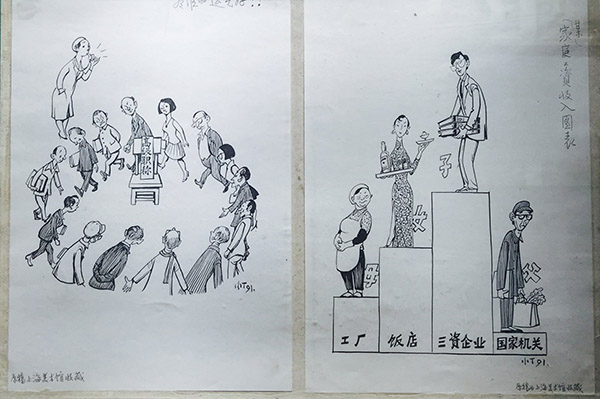 高级职称
小丁91.
原稿上海美术馆收藏
某家庭工资收入图表
子
女
母
父
工厂 饭店 三资企业 国家机关
小丁91
原稿上海美术馆收藏